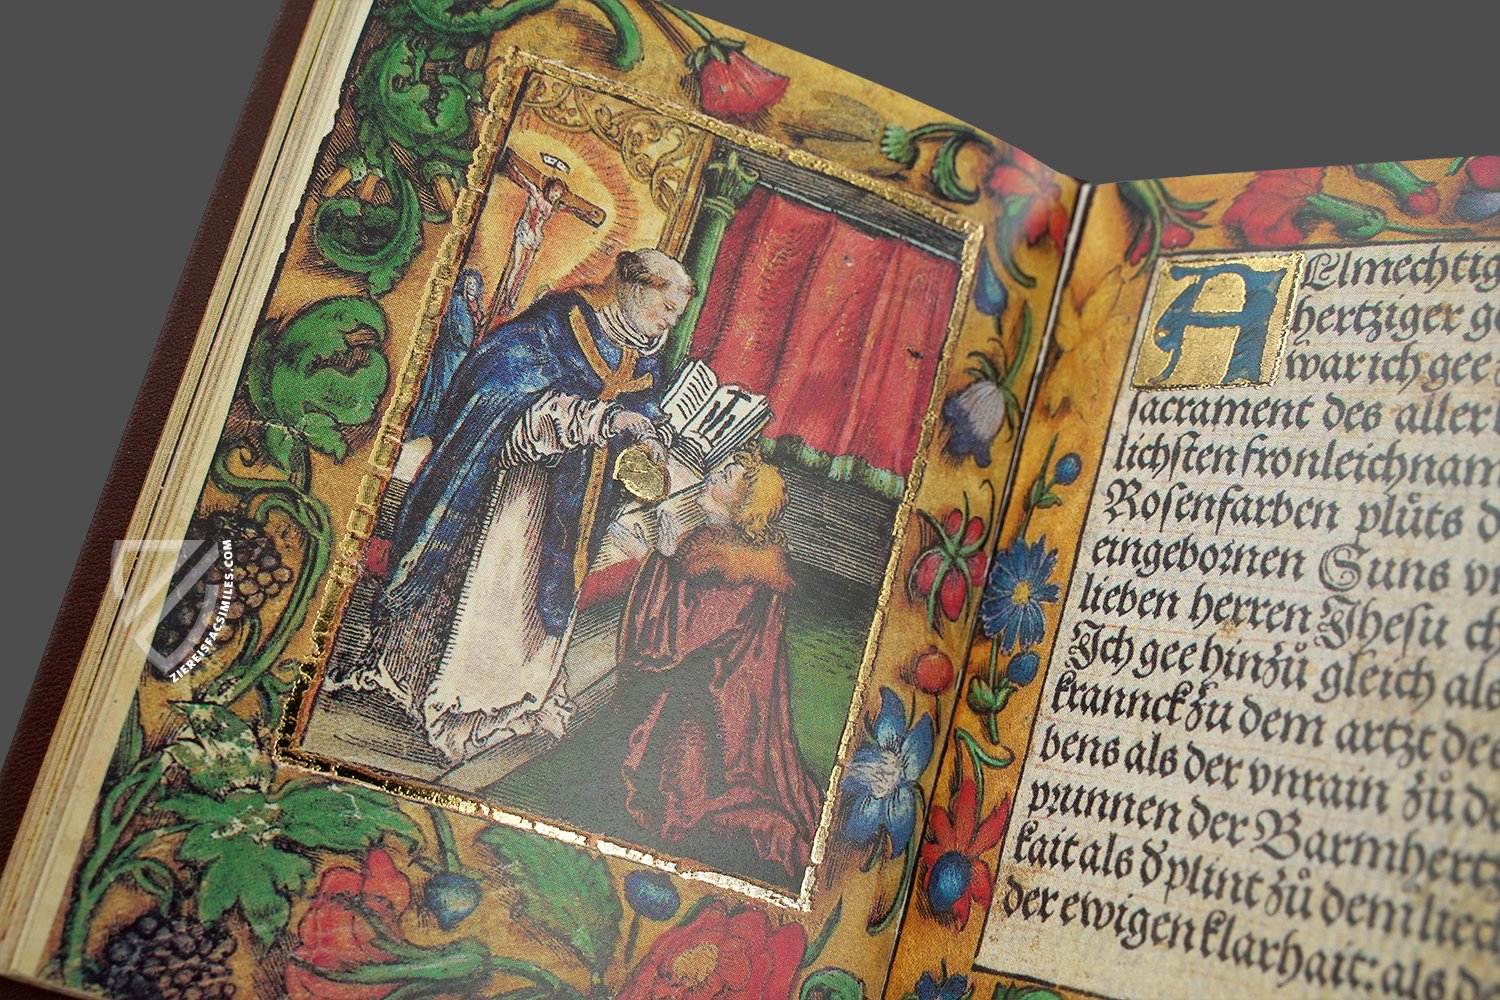 AElmechtig
hertziger ge
war ich gee
sacrament des aller
lichsten fronleichnam
Rosenfarben plůts d
eingebornen Suns vn
lieben herren Jhesu ch
Ich gee hinzů gleich als
krannck zu dem artzt des
bens als der vnrain zů de
prunnen der Barmhertz
kait als d̕ plint zů dem liec
der ewigen klarhait: als d
ZIEREISFACSIMILES.COM